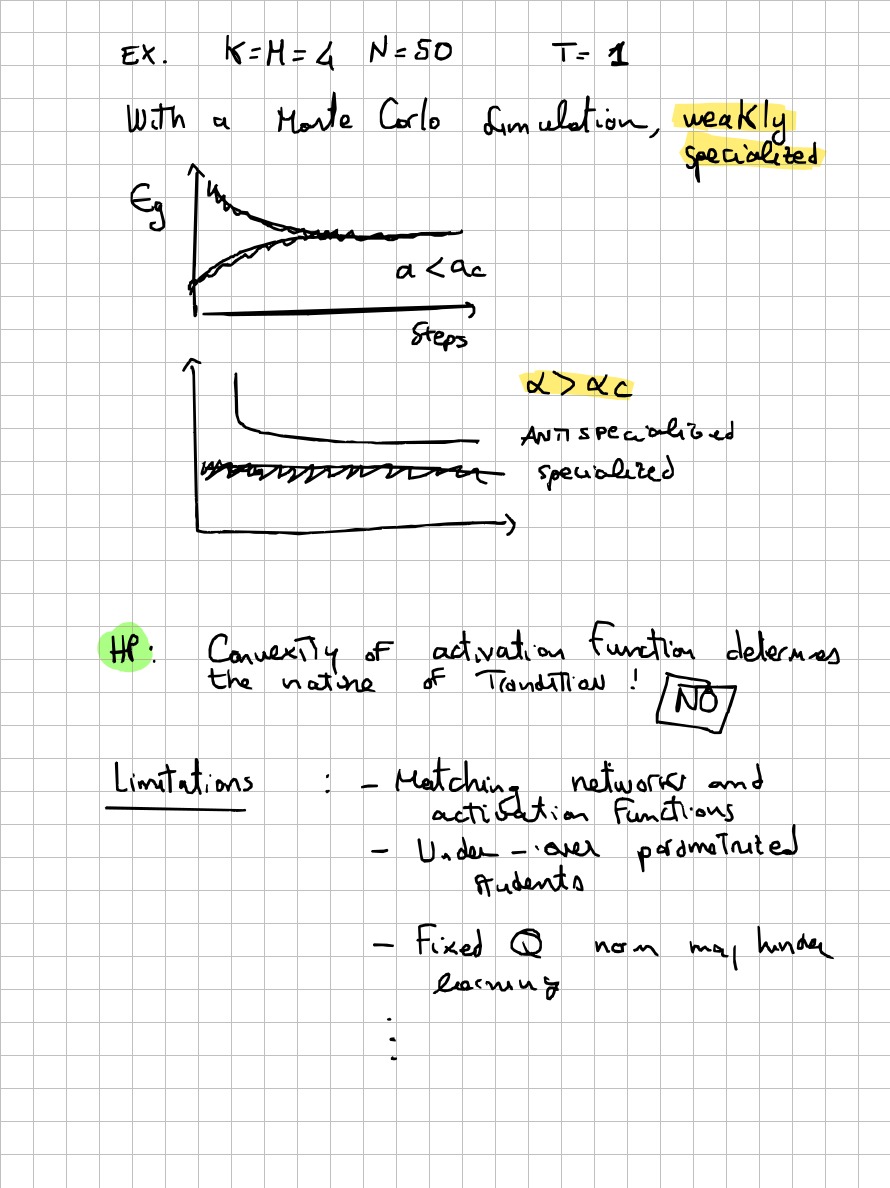 EX. K=M=4 N=50 T=1
With a Monte Carlo simulation, weakly
specialized
Eg
a < ac
Steps
α > αc
ANTI specialized
specialized
HP: Convexity of activation Function determines
the nature of Transition !
NO
Limitations : - Matching networks and
activation Functions
- Under - over parametrized
students
- Fixed Q norm may hinder
learning
⋮